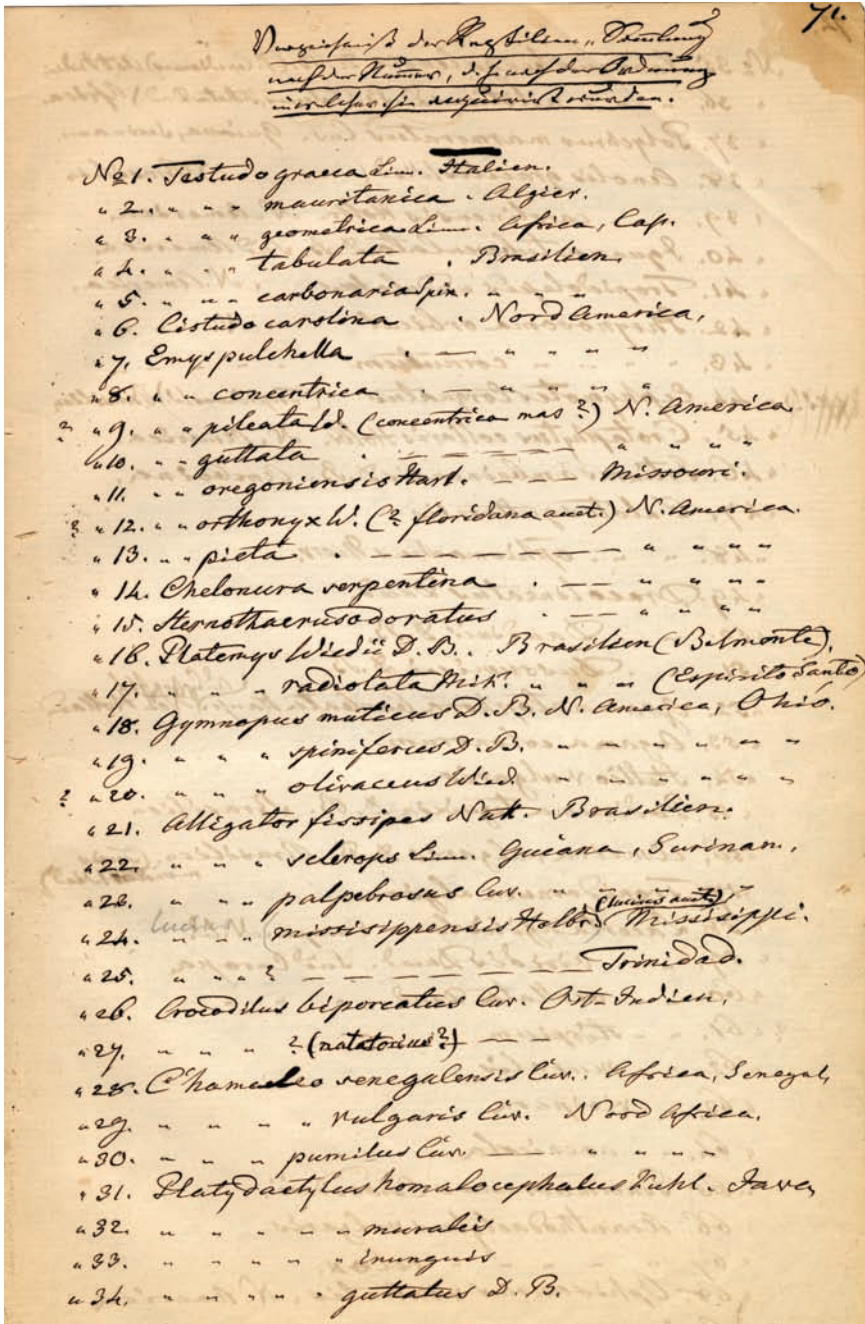 71.
Verzeichniß der Reptilien-Samlung
nach der Numer, d. h. nach der Ordnung
in welcher sie acquirirt wurden.
No 1. Testudo graeca Lin. Italien.
" 2. " " " mauritanica . Algier.
" 3. " " " geometrica Lin. Africa, Cap.
" 4. " " " tabulata . Brasilien.
" 5. " " " carbonaria Spix. " " "
" 6. Cistudo carolina . Nord America,
" 7. Emys pulchella . — " " " "
" 8. " " concentrica . — " " " "
? " 9. " " pileata W. (concentrica mas ?) N. America.
" 10. " " guttata . — — — " " " "
" 11. " " oregoniensis Harl. — — — Missouri.
? " 12. " " orthonyx W. (? floridana auct.) N. America.
" 13. " " picta . — — — — — " " " "
" 14. Chelonura serpentina . — — " " " "
" 15. Sternothaerus odoratus . — — " " " "
" 16. Platemys Wiedii D. B. . Brasilien (Belmonte).
" 17. " " " radiolata Mik. " " " (Espirito Santo)
" 18. Gymnopus muticus D. B. N. America, Ohió.
" 19. " " " spiniferus D. B. " " " " "
? " 20. " " " olivaceus Wied. " " " " "
" 21. Alligator fissipes Natt. Brasilien.
" 22. " " " sclerops Lin. Guiana, Surinam,
" 23. " " " palpebrosus Cuv. " " "
(lucius auct.)
" 24. lucius " " " missisippensis Holbr. Missisippi.
" 25. " " " ? — — — — — — Trinidad.
" 26. Crocodilus biporcatus Cuv. Ost-Indien,
" 27. " " " ? (natatorius ?) — —
" 28. Chamaeleo senegalensis Cuv. Africa, Senegal,
" 29. " " " " vulgaris Cuv. Nord Africa.
" 30. " " " pumilus Cuv. — " " "
" 31. Platydactylus homalocephalus Kuhl. Java,
" 32. " " " " " muralis
" 33. " " " " " inunguis
" 34. " " " " guttatus D. B.